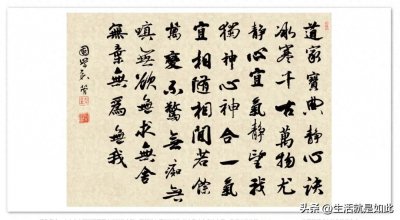 道家寶典静心訣
冰寒千古萬物尤
静心宜氣静望我
獨神心神合一氣
宜相隨相間若餘
萬變不驚無痴無
嗔無欲無求無舍
無棄無為無我
头条 @生活就是如此